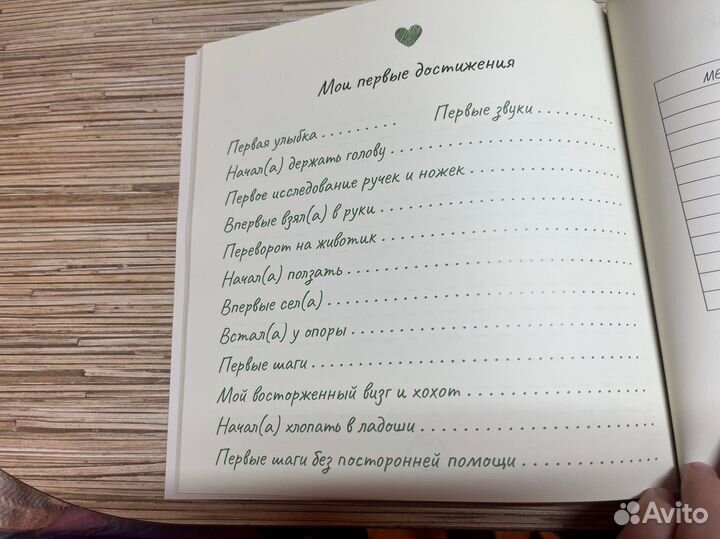 Мои первые достижения
Первая улыбка . . . . . . . . . Первые звуки . . . . . . . . .
Начал(а) держать голову . . . . . . . . . . . . . . . . . . . . . . . . . .
Первое исследование ручек и ножек . . . . . . . . . . . . . . . . .
Впервые взял(а) в руки . . . . . . . . . . . . . . . . . . . . . . . . . . .
Переворот на животик . . . . . . . . . . . . . . . . . . . . . . . . . . .
Начал(а) ползать . . . . . . . . . . . . . . . . . . . . . . . . . . . . . . .
Впервые сел(а) . . . . . . . . . . . . . . . . . . . . . . . . . . . . . . . . .
Встал(а) у опоры . . . . . . . . . . . . . . . . . . . . . . . . . . . . . . .
Первые шаги . . . . . . . . . . . . . . . . . . . . . . . . . . . . . . . . . . .
Мой восторженный визг и хохот . . . . . . . . . . . . . . . . . . . .
Начал(а) хлопать в ладоши . . . . . . . . . . . . . . . . . . . . . . . .
Первые шаги без посторонней помощи . . . . . . . . . . . . . . .
Avito